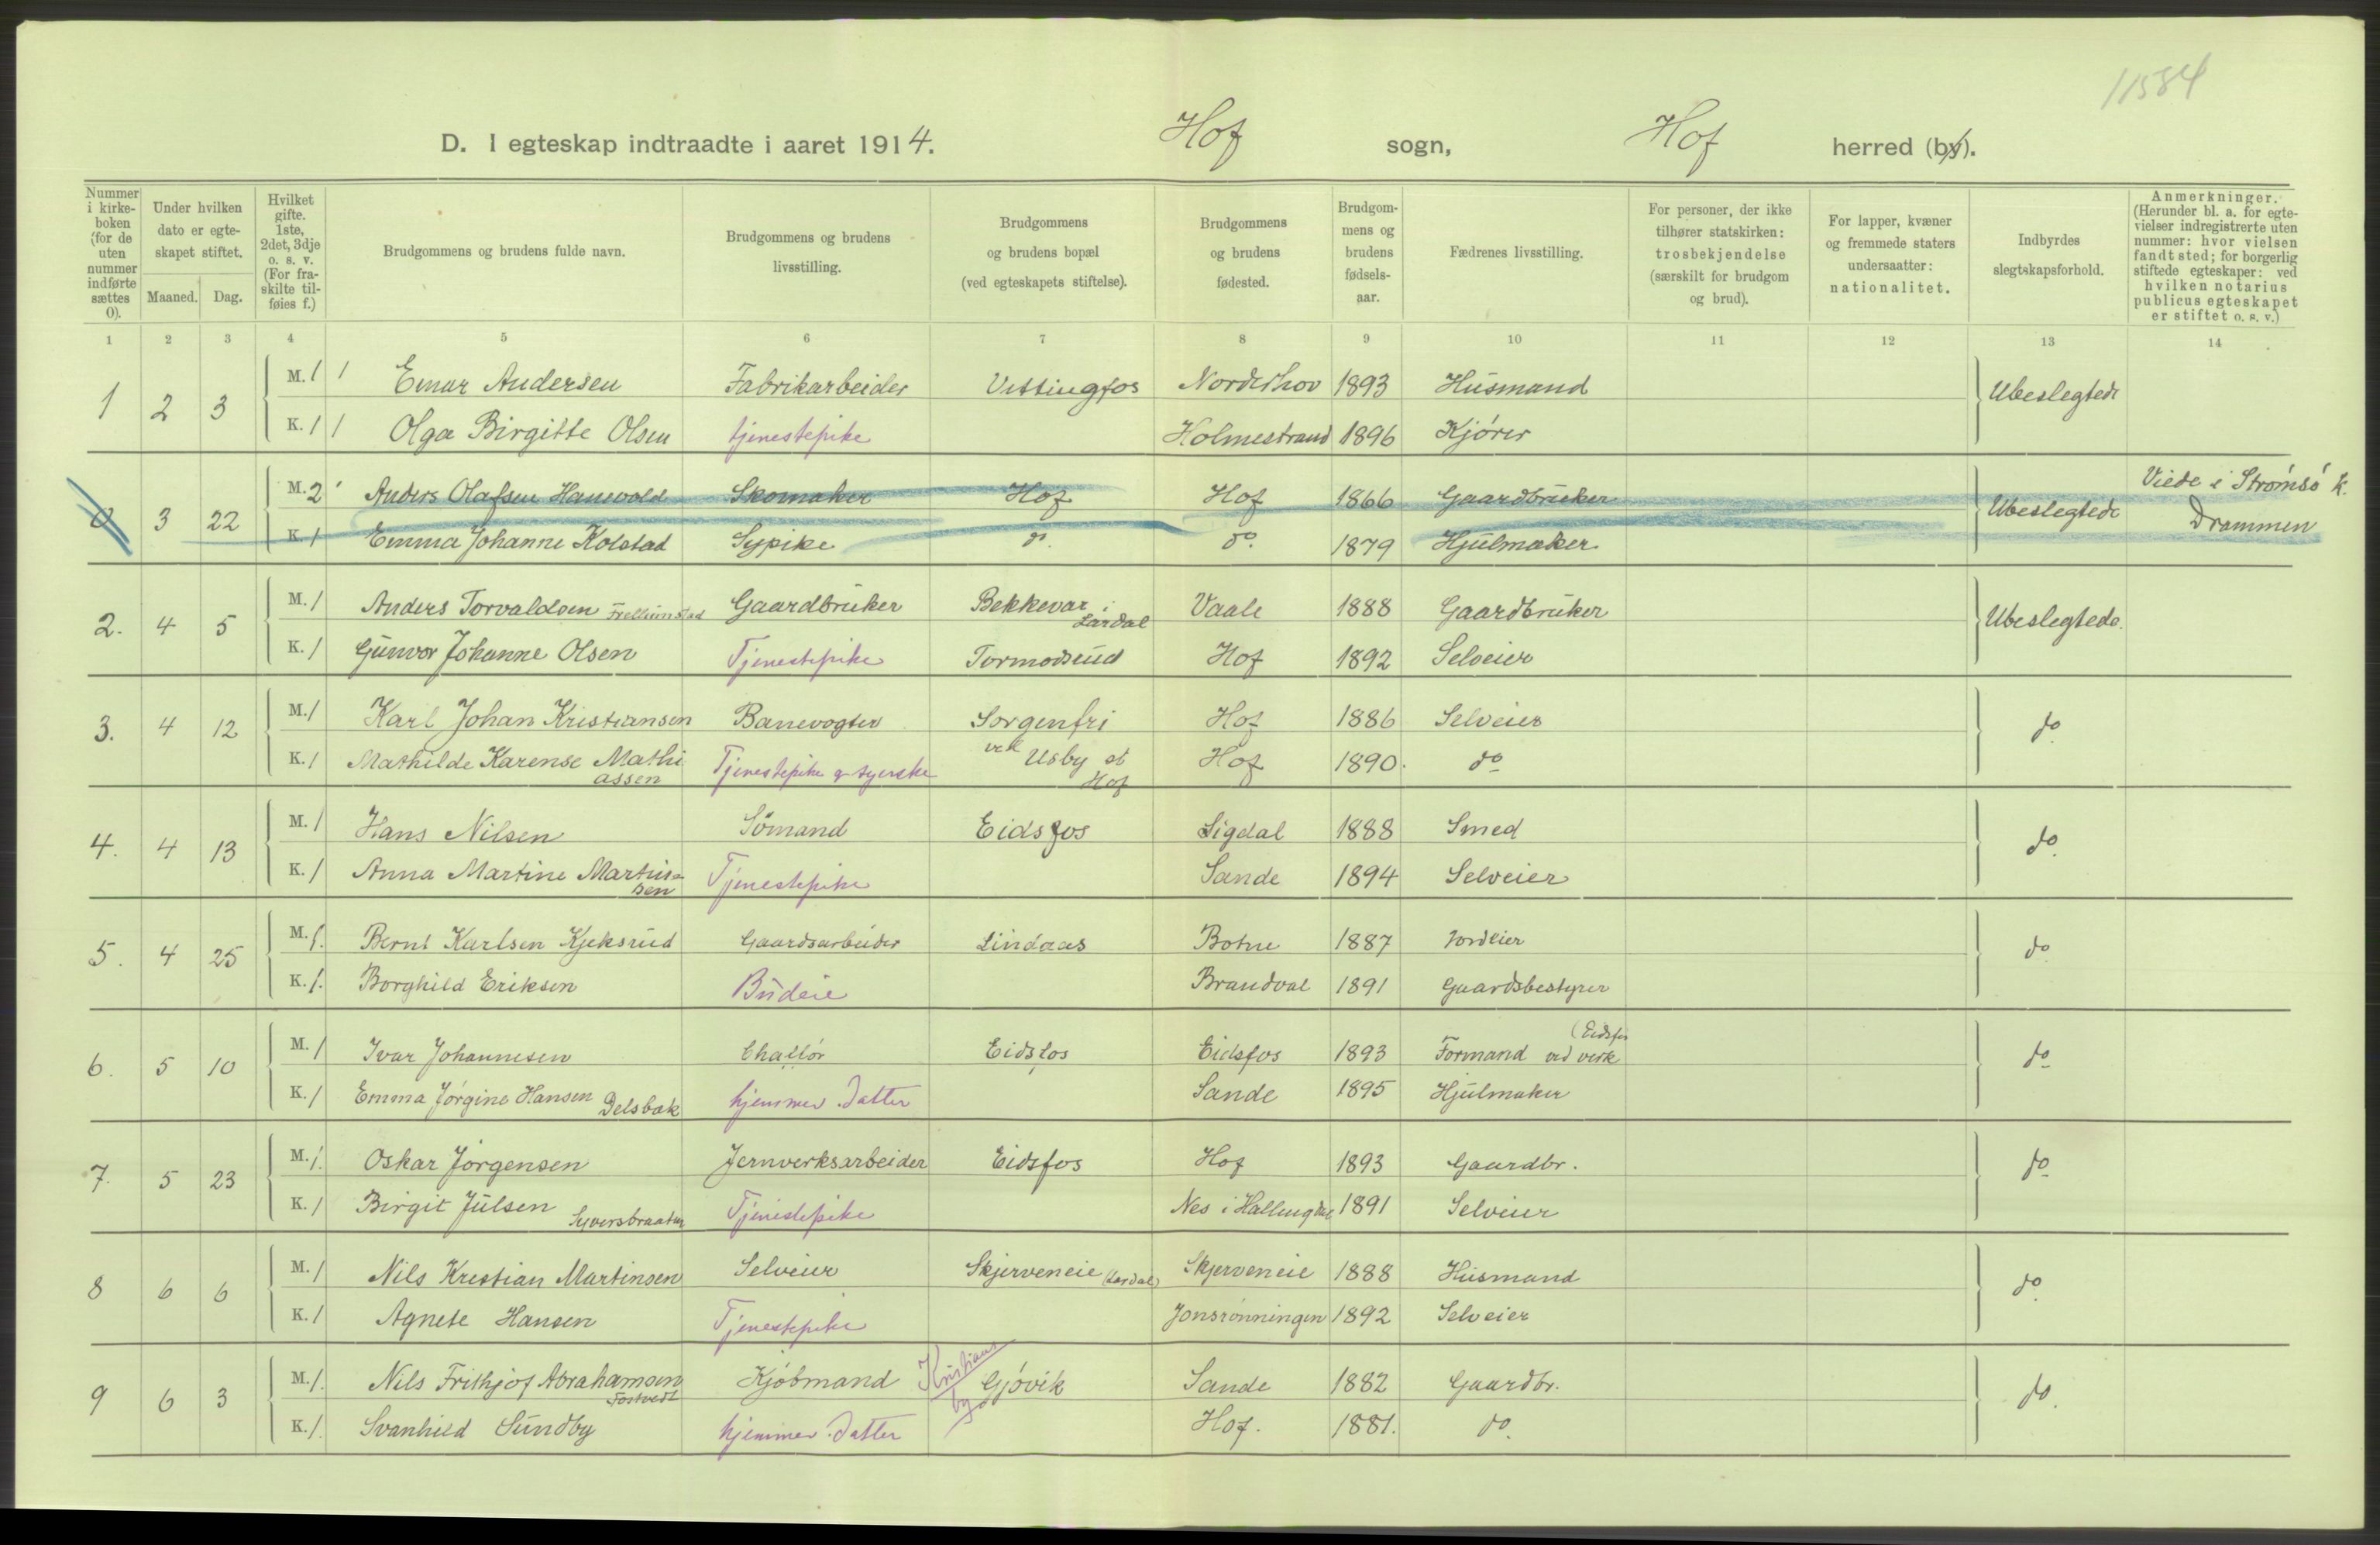 11584
D. I egteskap indtraadte i aaret 1914. Hof sogn, Hof herred (by).
Nummer i kirke-boken (for de uten nummer indførte sættes 0).
Under hvilken dato er egte-skapet stiftet.
Maaned. Dag.
Hvilket gifte. 1ste, 2det, 3dje o. s. v. (For fra-skilte til-føies f.)
Brudgommens og brudens fulde navn.
Brudgommens og brudens livsstilling.
Brudgommens og brudens bopæl (ved egteskapets stiftelse).
Brudgommens og brudens fødested.
Brudgom-mens og brudens fødsels-aar.
Fædrenes livsstilling.
For personer, der ikke tilhører statskirken: trosbekjendelse (særskilt for brudgom og brud).
For lapper, kvæner og fremmede staters undersaatter: nationalitet.
Indbyrdes slegtskapsforhold.
Anmerkninger. (Herunder bl. a. for egte-vielser indregistrerte uten nummer: hvor vielsen fandt sted; for borgerlig stiftede egteskaper: ved hvilken notarius publicus egteskapet er stiftet o. s. v.)
1 2 3 4 5 6 7 8 9 10 11 12 13 14
1 2 3 M. 1 1 Einar Andersen Fabrikarbeider Vittingfos Norderhov 1893 Husmand Ubeslegtede
K. 1 1 Olga Birgitte Olsen tjenestepike Holmestrand 1896 Kjører
0 3 22 M. 2 Anders Olafsen Hanevold Skomaker Hof Hof 1866 Gaardbruker Ubeslegtede Viede i Strømsø k. Drammen
K. 1 Emma Johanne Kolstad Sypike do. do. 1879 Hjulmaker
2. 4 5 M. 1 Anders Torvaldsen Frellumstad Gaardbruker Bekkevar i Lardal Vaale 1888 Gaardbruker Ubeslegtede.
K. 1 Gunvor Johanne Olsen Tjenestepike Tormodsrud Hof 1892 Selveier
3. 4 12 M. 1 Karl Johan Kristiansen Banevogter Sorgenfri Hof 1886 Selveier do
K. 1 Mathilde Karense Mathiassen Tjenestepike og syerske ved Usby st Hof Hof 1890. do
4. 4 13 M. 1 Hans Nilsen Sömand Eidsfos Sigdal 1888 Smed do.
K. 1 Anna Martine Martinsen Tjenestepike Sande 1894 Selveier
5. 4 25 M. 1. Bernt Karlsen Kjeksrud Gaardsarbeider Lindaas Botne 1887 Jordeier do
K. 1. Borghild Eriksen Budeie Brandval 1891 Gaardsbestyrer
6. 5 10 M. 1 Ivar Johannesen Chaffør Eidsfos Eidsfos 1893 Formand ved (Eidsfos verk do
K. 1 Emma Jørgine Hansen Delsbæk hjemmev. datter Sande 1895 Hjulmaker
7. 5 23 M. 1. Oskar Jørgensen Jernverksarbeider Eidsfos Hof 1893 Gaardbr. do
K. 1 Birgit Julsen Syversbraaten Tjenestepike Nes i Hallingdal 1891 Selveier
8 6 6 M. 1 Nils Kristian Martinsen Selveier Skjerveneie (Lardal) Skjerveneie 1888 Husmand do.
K. 1 Agnete Hansen Tjenestepike Jonsrønningen 1892 Selveier
9 6 3 M. 1. Nils Frithjof Abrahamsen Tostvedt Kjöbmand Kristians by Gjøvik Sande 1882 Gaardbr. do.
K. 1. Svanhild Sundby hjemmev. datter Hof. 1881. do.